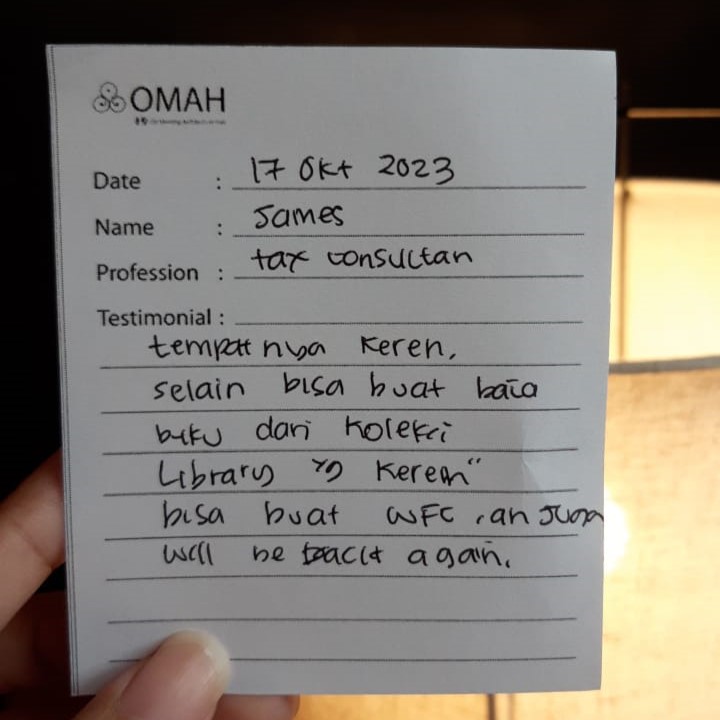 OMAH
Date : 17 Okt 2023
Name : James
Profession : tax consultan
Testimonial :
tempatnya keren,
selain bisa buat baca
buku dari koleksi
Library yg keren"
bisa buat WFC, an juga
will be back again.